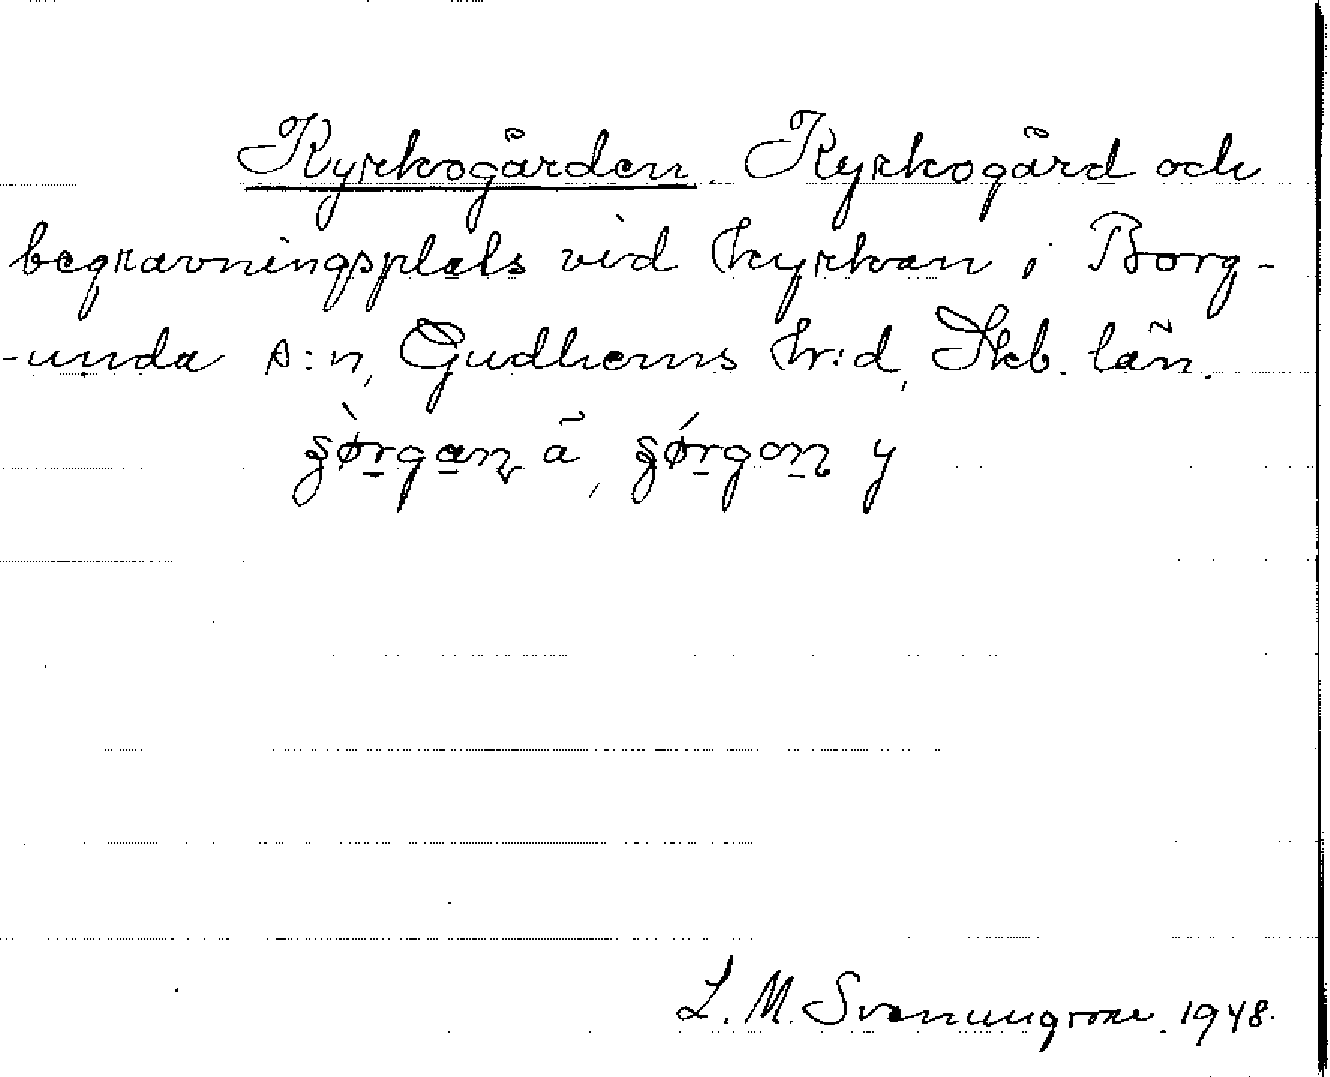 Kyrkogården. Kyrkogård och
begravningsplats vid kyrkan i Borg-
-unda s:n, Gudhems hr:d, Skb. län.
ä, y
L. M. Svenungsson. 1948.